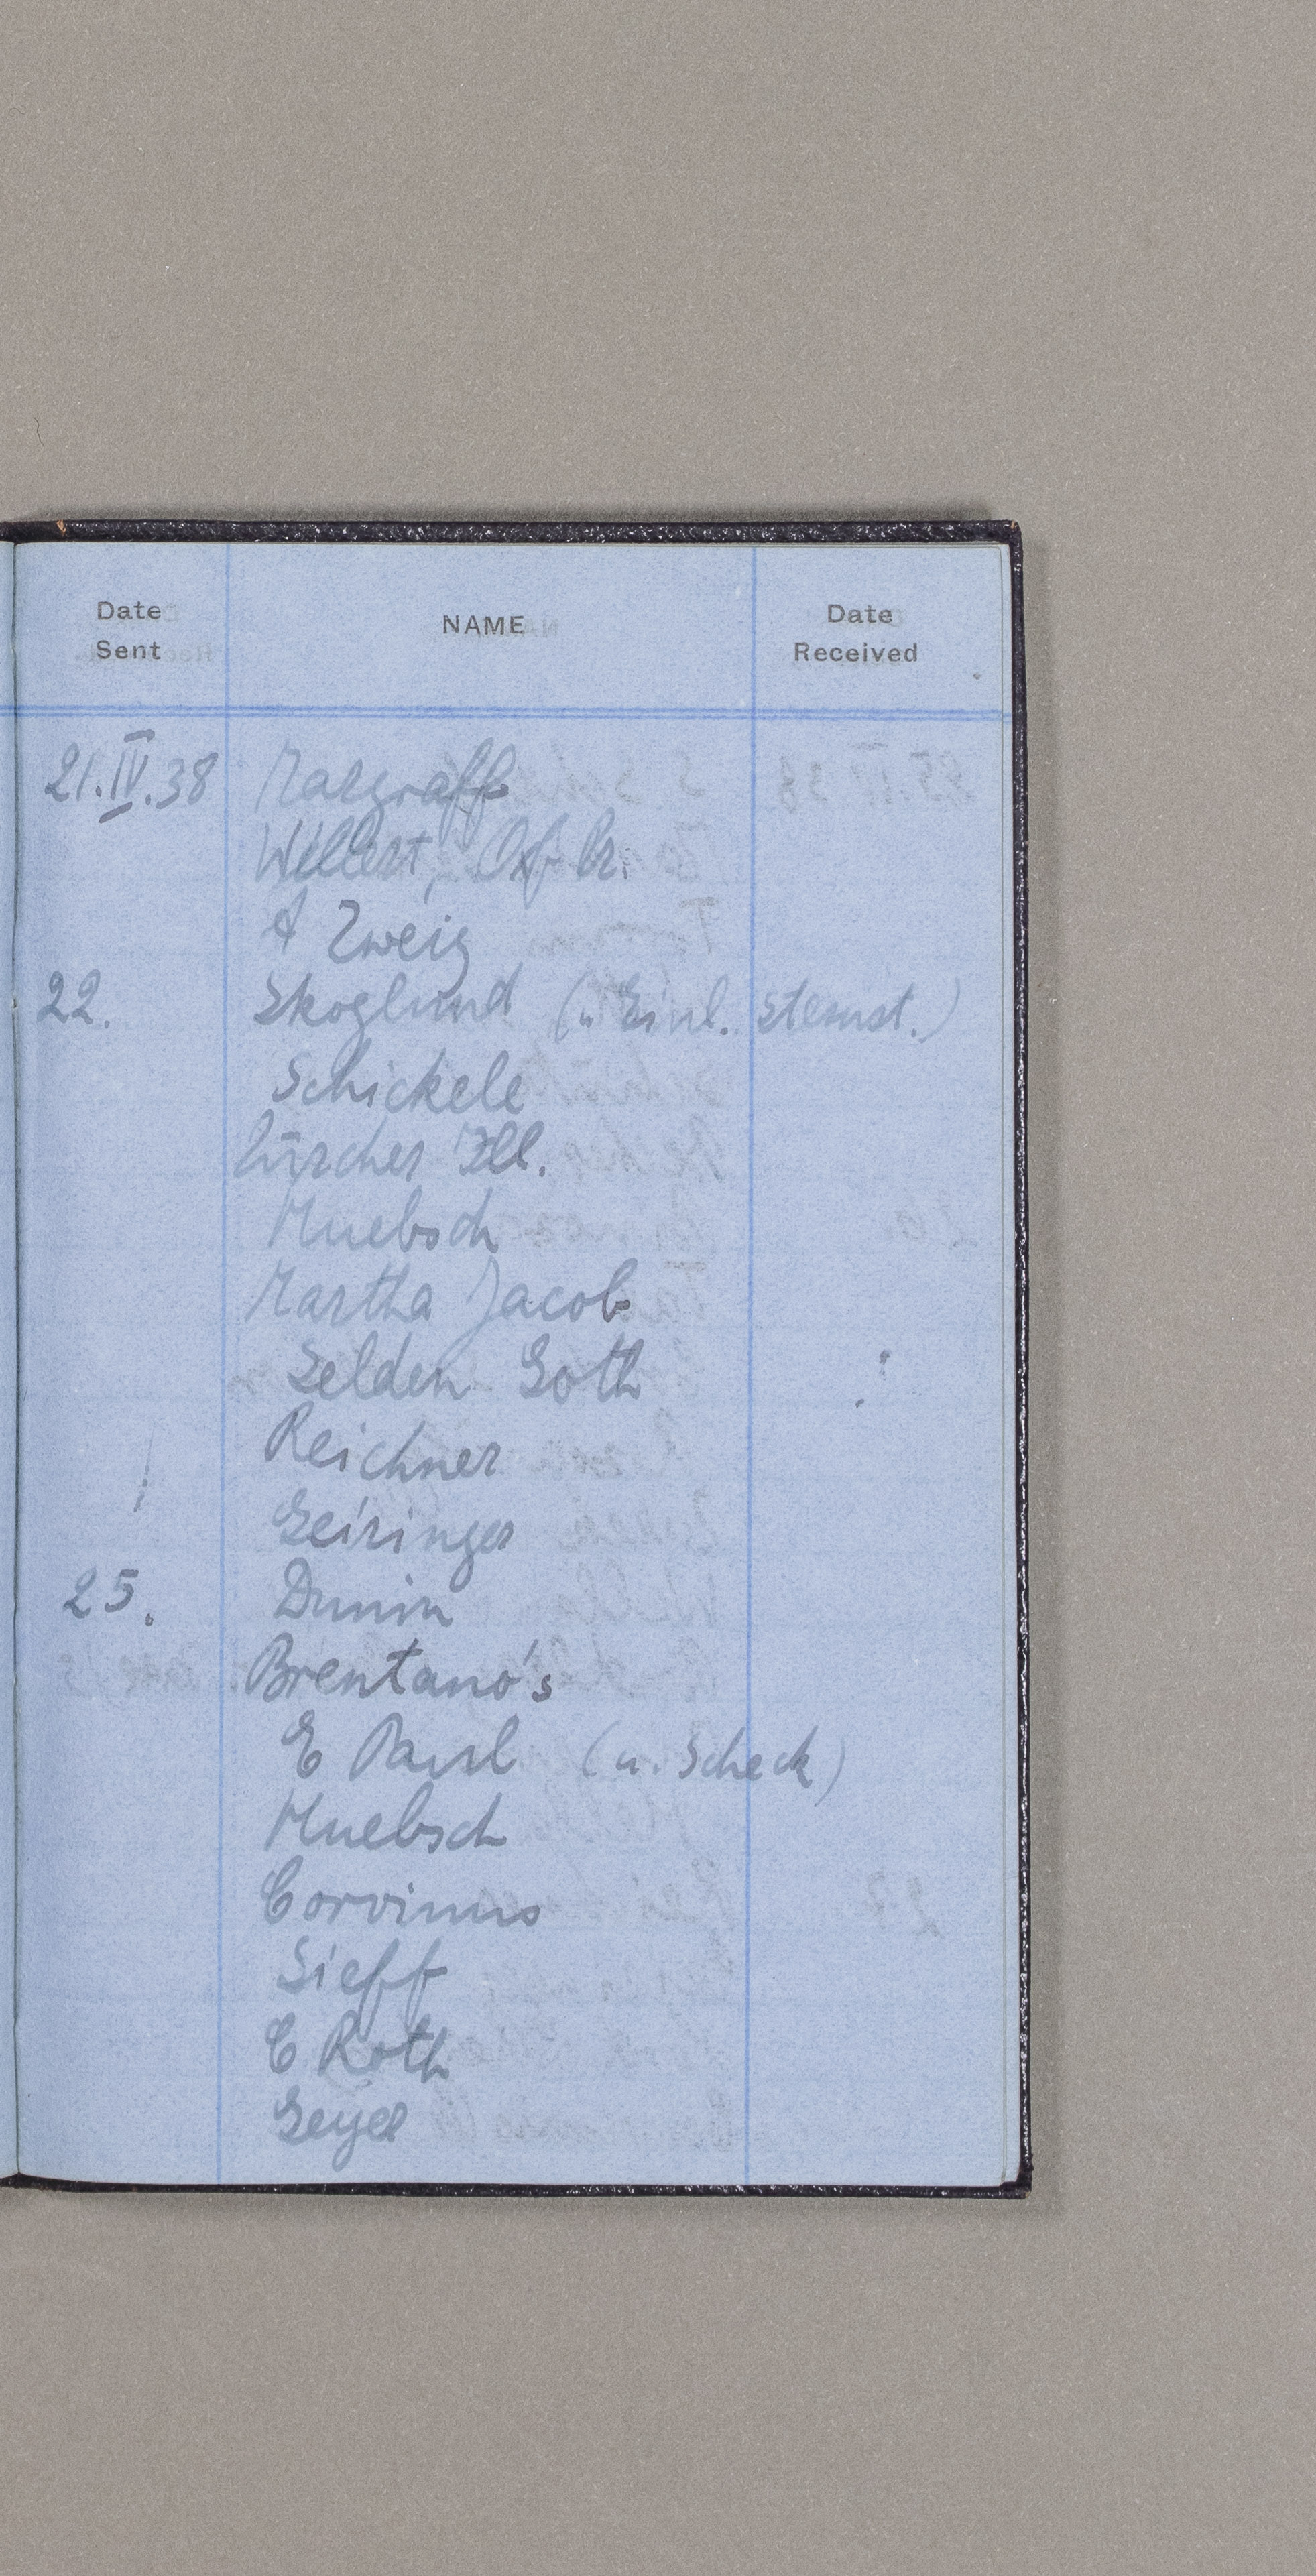 Date Sent NAME Date Received
21.IV.38 Margraff
Willert, Oxf Pr.
A Zweig
22. Skoglund (u Einl. Sternst.)
Schickele
Zürcher Ill.
Huebsch
Martha Jacob
Selden Goth
Reichner
Geiringer
25. Dunin
Brentano's
E Paul (u. Scheck)
Huebsch
Corvinus
Sieff
C Roth
Geyer